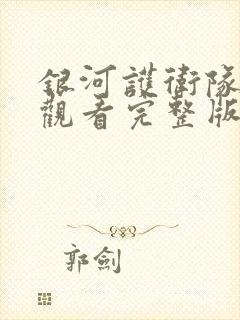 銀河護衛隊
觀看完整版
郭劍